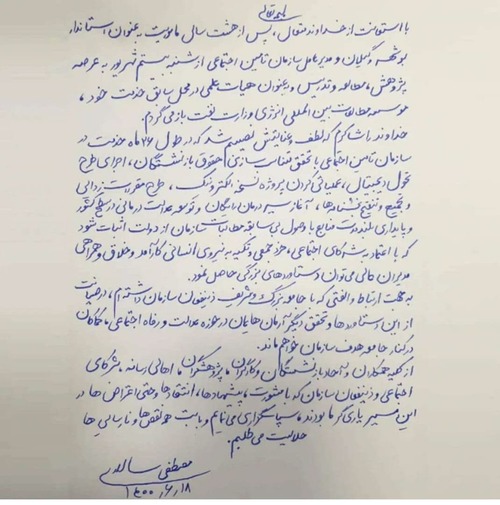 باسمه تعالی
با استعانت از خداوند متعال، پس از هشت سال ماموریت به عنوان استاندار
بوشهر و گیلان و مدیرعامل سازمان تامین اجتماعی از شنبه بیستم شهریور به عرصه
پژوهش، مطالعه و تدریس و بعنوان هیات علمی در محل سابق خدمت خود،
موسسه مطالعات بین المللی انرژی وزارت نفت باز می گردم.
خداوند را شاکرم که لطف و عنایتش نصیبم شد که در طول ۲۶ ماه خدمت در
سازمان تامین اجتماعی با تحقق متناسب سازی حقوق بازنشستگان، اجرای طرح
تحول دیجیتال، عملیاتی کردن پروژه نسخه الکترونیک، طرح مقررات زدائی
و تجمیع و تنقیح بخشنامه ها، آغاز سیر درمان رایگان و توسعه عدالت درمانی در سطح کشور
و پایداری بلندمدت منابع با وصول بی سابقه مطالبات سازمان از دولت اثبات شود
که با اعتماد به شرکای اجتماعی، خرد جمعی و تکیه به نیروی انسانی کارآمد و خلاق و همراهی
مدیران عالی می توان دستاوردهای بزرگی حاصل نمود.
به جهت ارتباط و الفتی که با جامعه بزرگ و شریف ذینفعان سازمان داشته ام، در صیانت
از این دستاوردها و تحقق دیگر آرمان هایمان در حوزه عدالت و رفاه اجتماعی، کماکان
در کنار جامعه هدف سازمان خواهم ماند.
از کلیه همکاران و آحاد بازنشستگان و کارگران، پژوهشگران، اهالی رسانه، شرکای
اجتماعی و ذینفعان سازمان که با مشورت، پیشنهادها، انتقادها و حتی اعتراض ها در
این مسیر یاری گر ما بودند، سپاسگزاری می نمایم و بابت همه نقص ها و نارسایی ها
حلالیت می طلبم.
مصطفی سالاری
۱۴۰۰/۶/۱۸